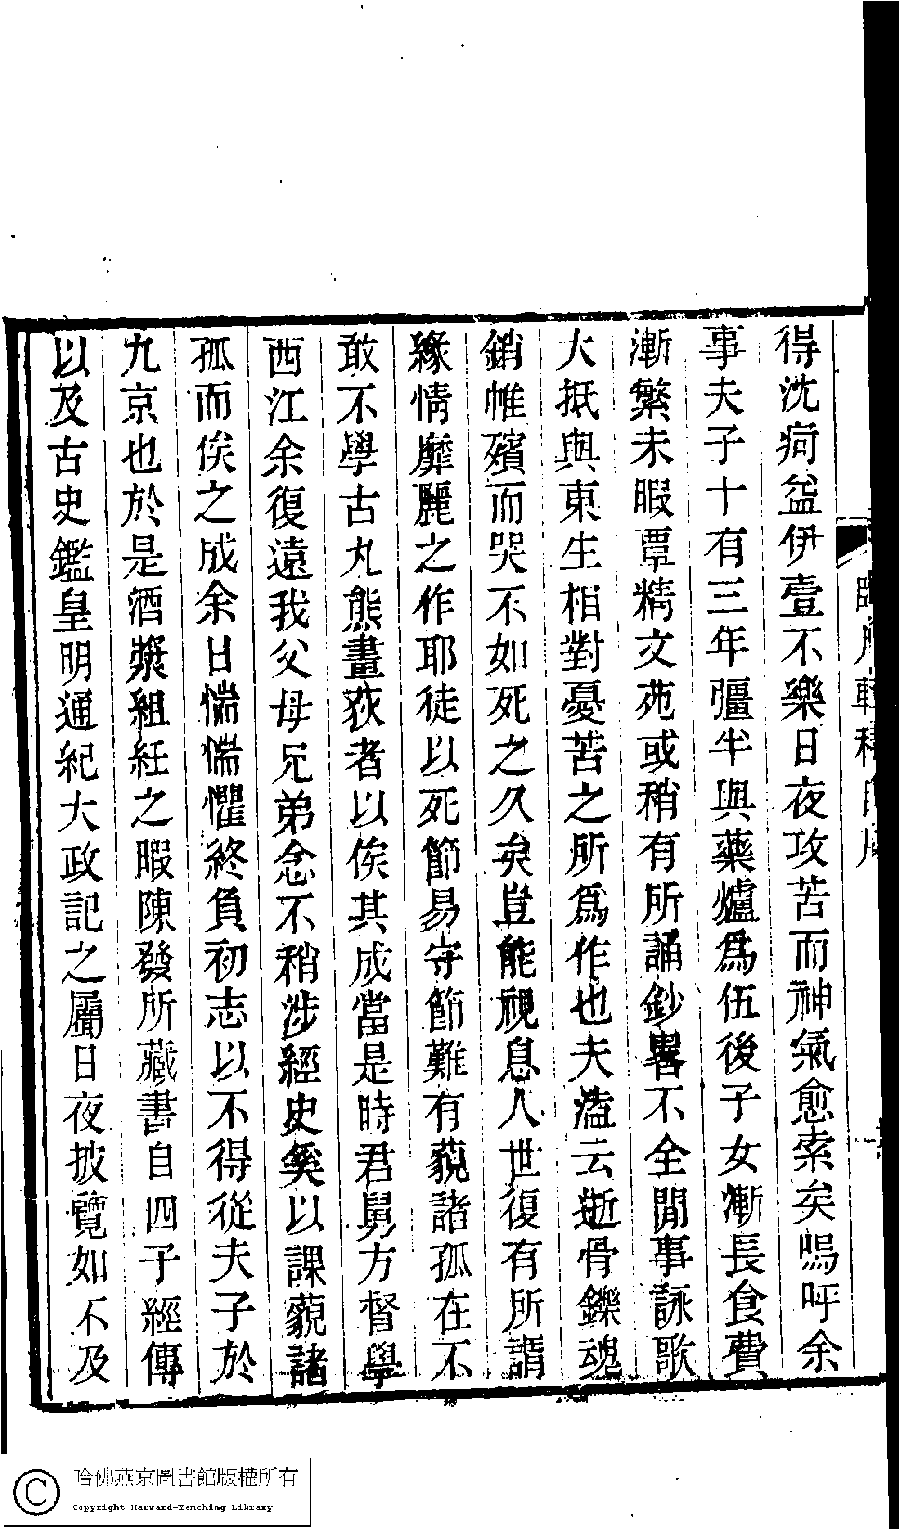 得沈疴盆伊壹不樂日夜攻苦而神氣愈索矣嗚呼余
事夫子十有三年彊半與藥爐爲伍後子女漸長食費
漸繁未暇覃精文苑或稍有所誦鈔畧不全閒事詠歌
大抵與東生相對憂苦之所爲作也夫溘云逝骨鑠魂
銷帷殯而哭不如死之久矣豈能視息人世復有所謂
緣情靡麗之作耶徒以死節易守節難有藐諸孤在不
敢不學古丸熊畫荻者以俟其成當是時君舅方督學
西江余復遠我父母兄弟念不稍涉經史奚以課藐諸
孤而俟之成余日惴惴懼終負初志以不得從夫子於
九京也於是酒漿組紝之暇陳發所藏書自四子經傳
以及古史鑑皇明通紀大政記之屬日夜披覽如不及
哈佛燕京圖書館版權所有
Copyright Harvard-Yenching Library